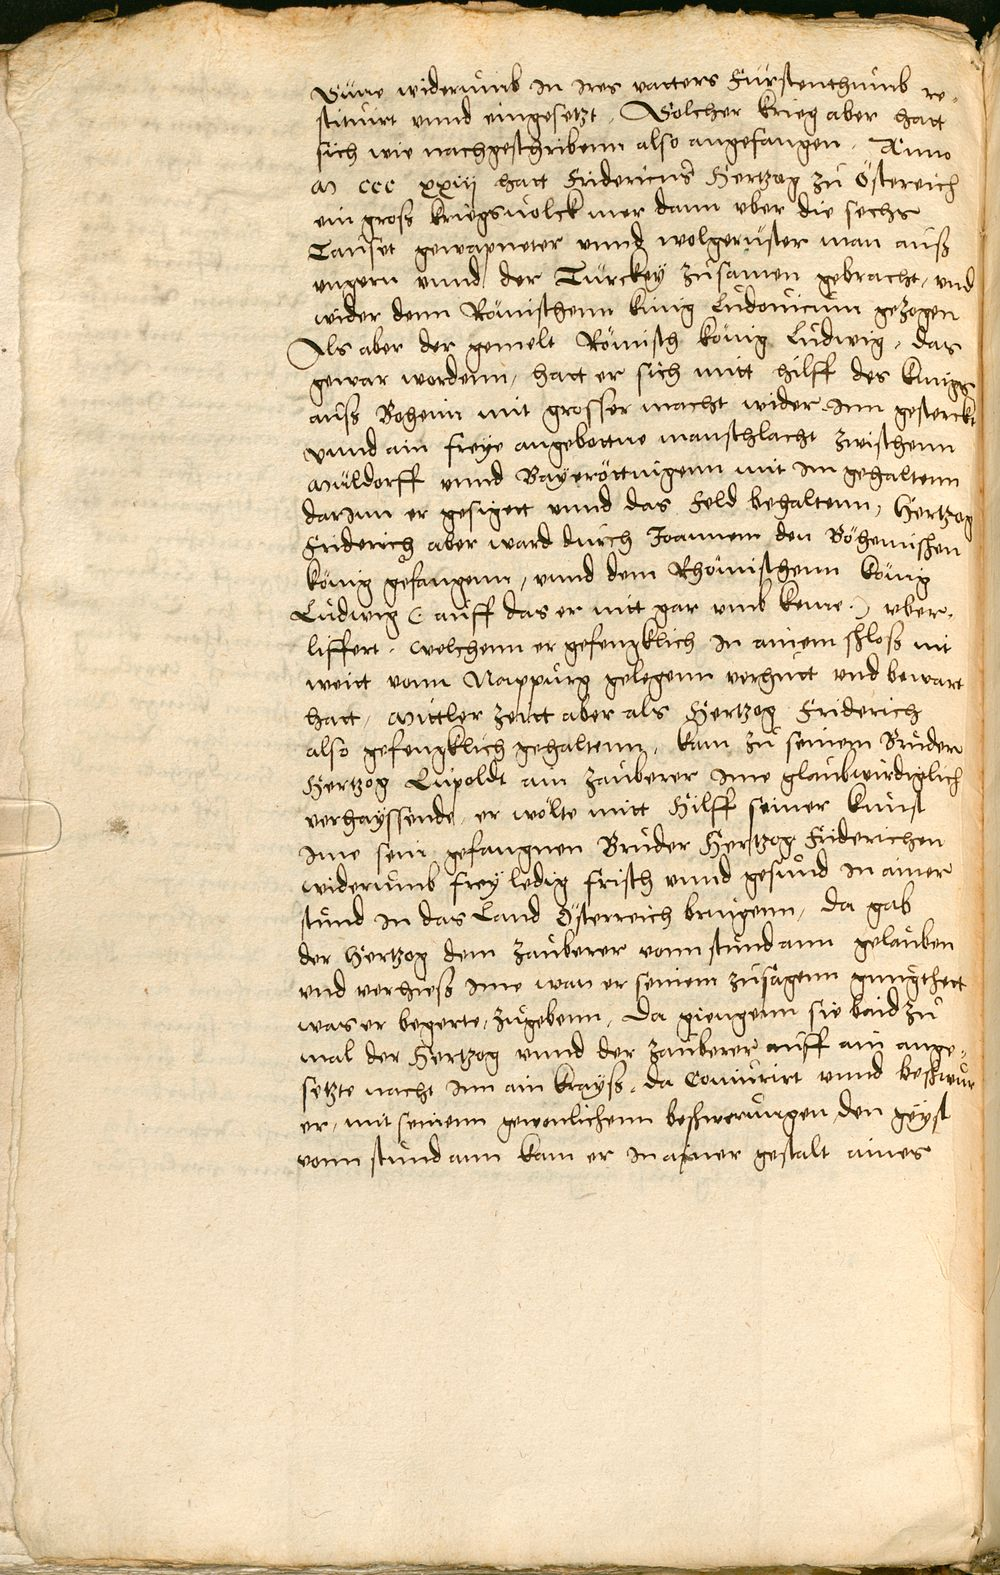 Süne widerumb in ires vatters Fürstenthumb re-
stituirt vnnd eingesetzt. Solcher krieg aber hatt
sich wie nachgeschribenn also angefangen. Anno
M CCC XXIIJ hatt Fridericus Hertzog zu Östereich
ein groß kriegsuolck mer dann vber die sechs
Tauset gewapneter vnnd wolgerüster man auß
vngern vnnd der Türckey zusamen gebracht, vnd
wider denn Römischenn künig Ludouicum gezogen
Als aber der gemelt Römisch könig Ludwig, das
gewar wordenn, hatt er sich mitt hilff des künigs
auß Bohemi mit grosser macht wider Inn gesterckt
vnnd ain freye angebottne manschlacht zwischenn
Müldorff vnnd Bayeröttnigenn mit im gehaltenn
darInn er gesigett vnnd das Feld behaltenn, Hertzog
Friderich aber ward durch Joannem den Böhemischen
könig gefangenn, vnnd dem Rhömischenn könig
Ludwig (auff das er nitt gar vmb keme.) vber-
liffert. Welchenn er gefengklich in ainem schloß nit
weitt vonn Nappurg gelegenn verhutt vnd bewart
hatt, Mittler zeitt aber als Hertzog Friderich
also gefengklich gehaltenn, kam zu seinem Bruder
Hertzog Lupoldt ain zauberer ime glaubwirdiglich
verhayssende, er wölte mitt Hilff seiner kunst
ime sein gefangnen Bruder Hertzog Friderichen
widerumb frey ledig frisch vnnd gesund in ainer
stund in das Land Österreich bringenn, da gab
der Hertzog dem zauberer vonn stund ann gelauben
vnd verhieß ime wan er seinem zusagenn gnugthett
was er begerte, zugebenn, Da giengenn sie baid zu
mal der Hertzog vnnd der zauberer auff ain ange-
setzte nacht inn ain krayß, da Coniurirt vnnd beschwur
er, mit seinenn gewonlichenn beschwerungen, den geyst
vonn stund ann kam er in ainer gestalt aines